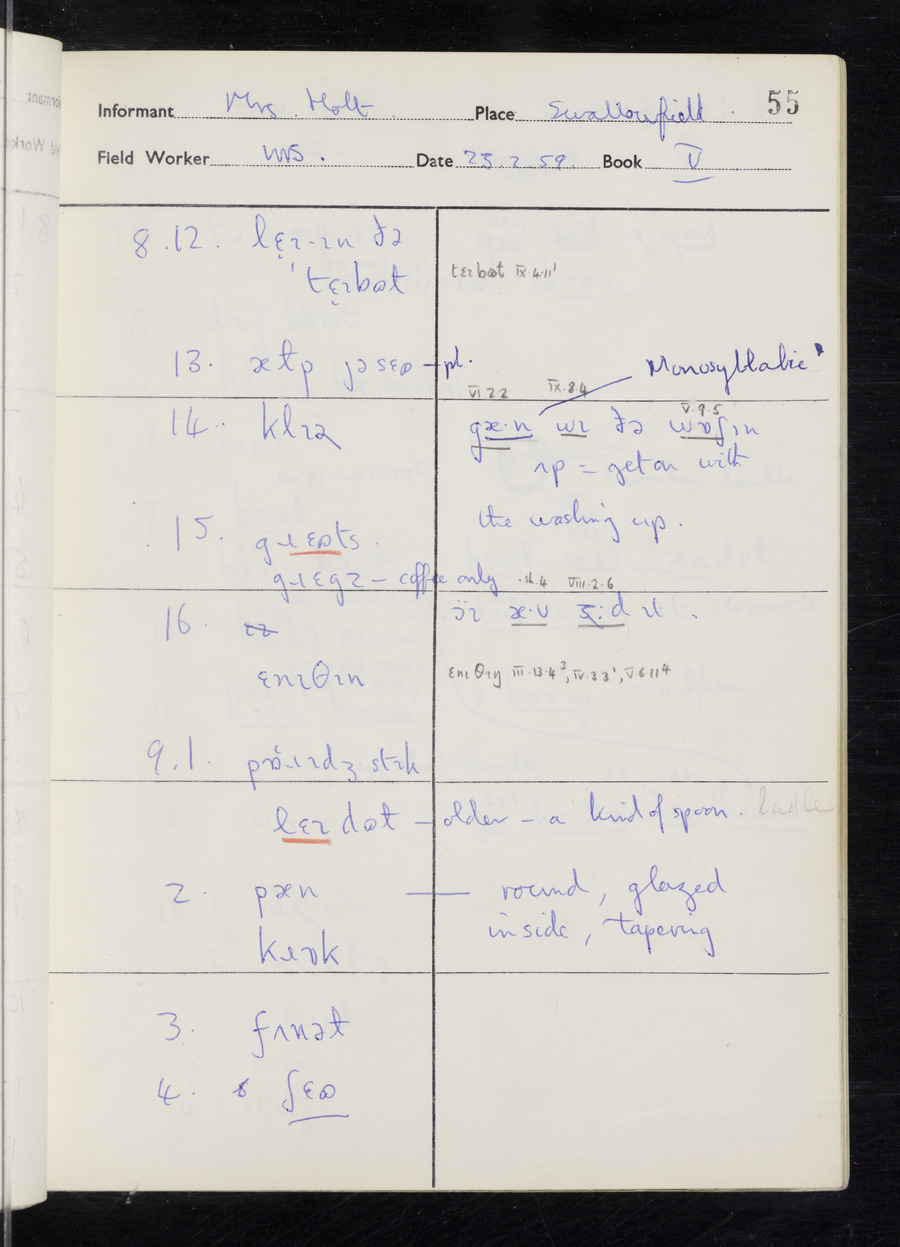 55
Informant Mrs. Holt Place Swallowfield.
Field Worker Date 25.2.59. Book V
8.12. lɛ̝ɪ-ɪn ðə
ˈtɛ̝ɪbət tɛɪbət IX.4.11¹
13. – pl. Monosyllabic
VI.2.2 IX.8.4 V.9.5
14. klɪə gæ·n wɪ ðə wɒʃɪn
ʌp = get on with
the washing up.
15. gɹɛɷts.
gɹɛgz – coffee only .sh.4 VIII.2.6
16.
ɛnɪθɪn ɛnɪθɪŋ III.13.4³, IV.3.3¹, V.6.11⁴
9.1.
lɛɪdət – older – a kind of spoon. ladle
2. pæn — round, glazed
kɹɒk inside, tapering
3. fʌnət
4. ʃɛɷ